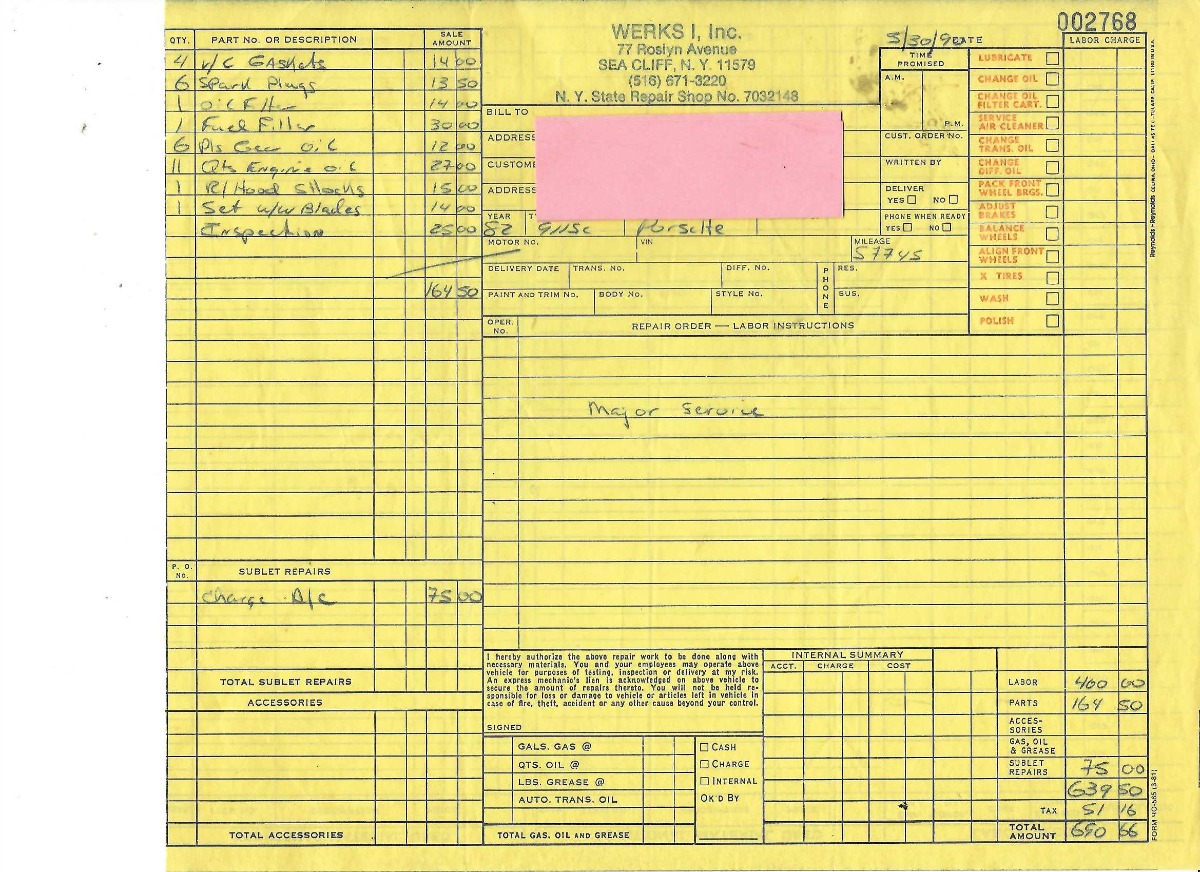 002768
WERKS I, Inc.
77 Roslyn Avenue
SEA CLIFF, N. Y. 11579
(516) 671-3220
N. Y. State Repair Shop No. 7032148
5/30/90 DATE
TIME PROMISED
A.M.
P.M.
CUST. ORDER NO.
WRITTEN BY
DELIVER
YES NO
PHONE WHEN READY
YES NO
LABOR CHARGE
LUBRICATE
CHANGE OIL
CHANGE OIL FILTER CART.
SERVICE AIR CLEANER
CHANGE TRANS. OIL
CHANGE DIFF. OIL
PACK FRONT WHEEL BRGS.
ADJUST BRAKES
BALANCE WHEELS
ALIGN FRONT WHEELS
X TIRES
WASH
POLISH
QTY. PART NO. OR DESCRIPTION SALE AMOUNT
4 v/c Gaskets 14 00
6 Spark Plugs 13 50
1 Oil Filter 14 00
1 Fuel Filter 30 00
6 Pts Gear Oil 12 00
11 Qts Engine oil 27 00
1 R/Hood Shocks 15 00
1 Set w/w Blades 14 00
Inspection 25 00
164 50
BILL TO
ADDRESS
CUSTOME
ADDRESS
YEAR
82 911sc Porsche
MOTOR NO. VIN MILEAGE
57745
DELIVERY DATE TRANS. NO. DIFF. NO. PHONE RES.
PAINT AND TRIM NO. BODY NO. STYLE NO. BUS.
OPER. NO. REPAIR ORDER — LABOR INSTRUCTIONS
Major Service
P. O. No. SUBLET REPAIRS
Charge A/c 75 00
TOTAL SUBLET REPAIRS
ACCESSORIES
TOTAL ACCESSORIES
I hereby authorize the above repair work to be done along with
necessary materials. You and your employees may operate above
vehicle for purposes of testing, inspection or delivery at my risk.
An express mechanic's lien is acknowledged on above vehicle to
secure the amount of repairs thereto. You will not be held re-
sponsible for loss or damage to vehicle or articles left in vehicle in
case of fire, theft, accident or any other cause beyond your control.
SIGNED
GALS. GAS @
QTS. OIL @
LBS. GREASE @
AUTO. TRANS. OIL
TOTAL GAS, OIL AND GREASE
CASH
CHARGE
INTERNAL
OK'D BY
INTERNAL SUMMARY
ACCT. CHARGE COST
LABOR 400 00
PARTS 164 50
ACCES-SORIES
GAS, OIL & GREASE
SUBLET REPAIRS 75 00
639 50
TAX 51 16
TOTAL AMOUNT 690 66